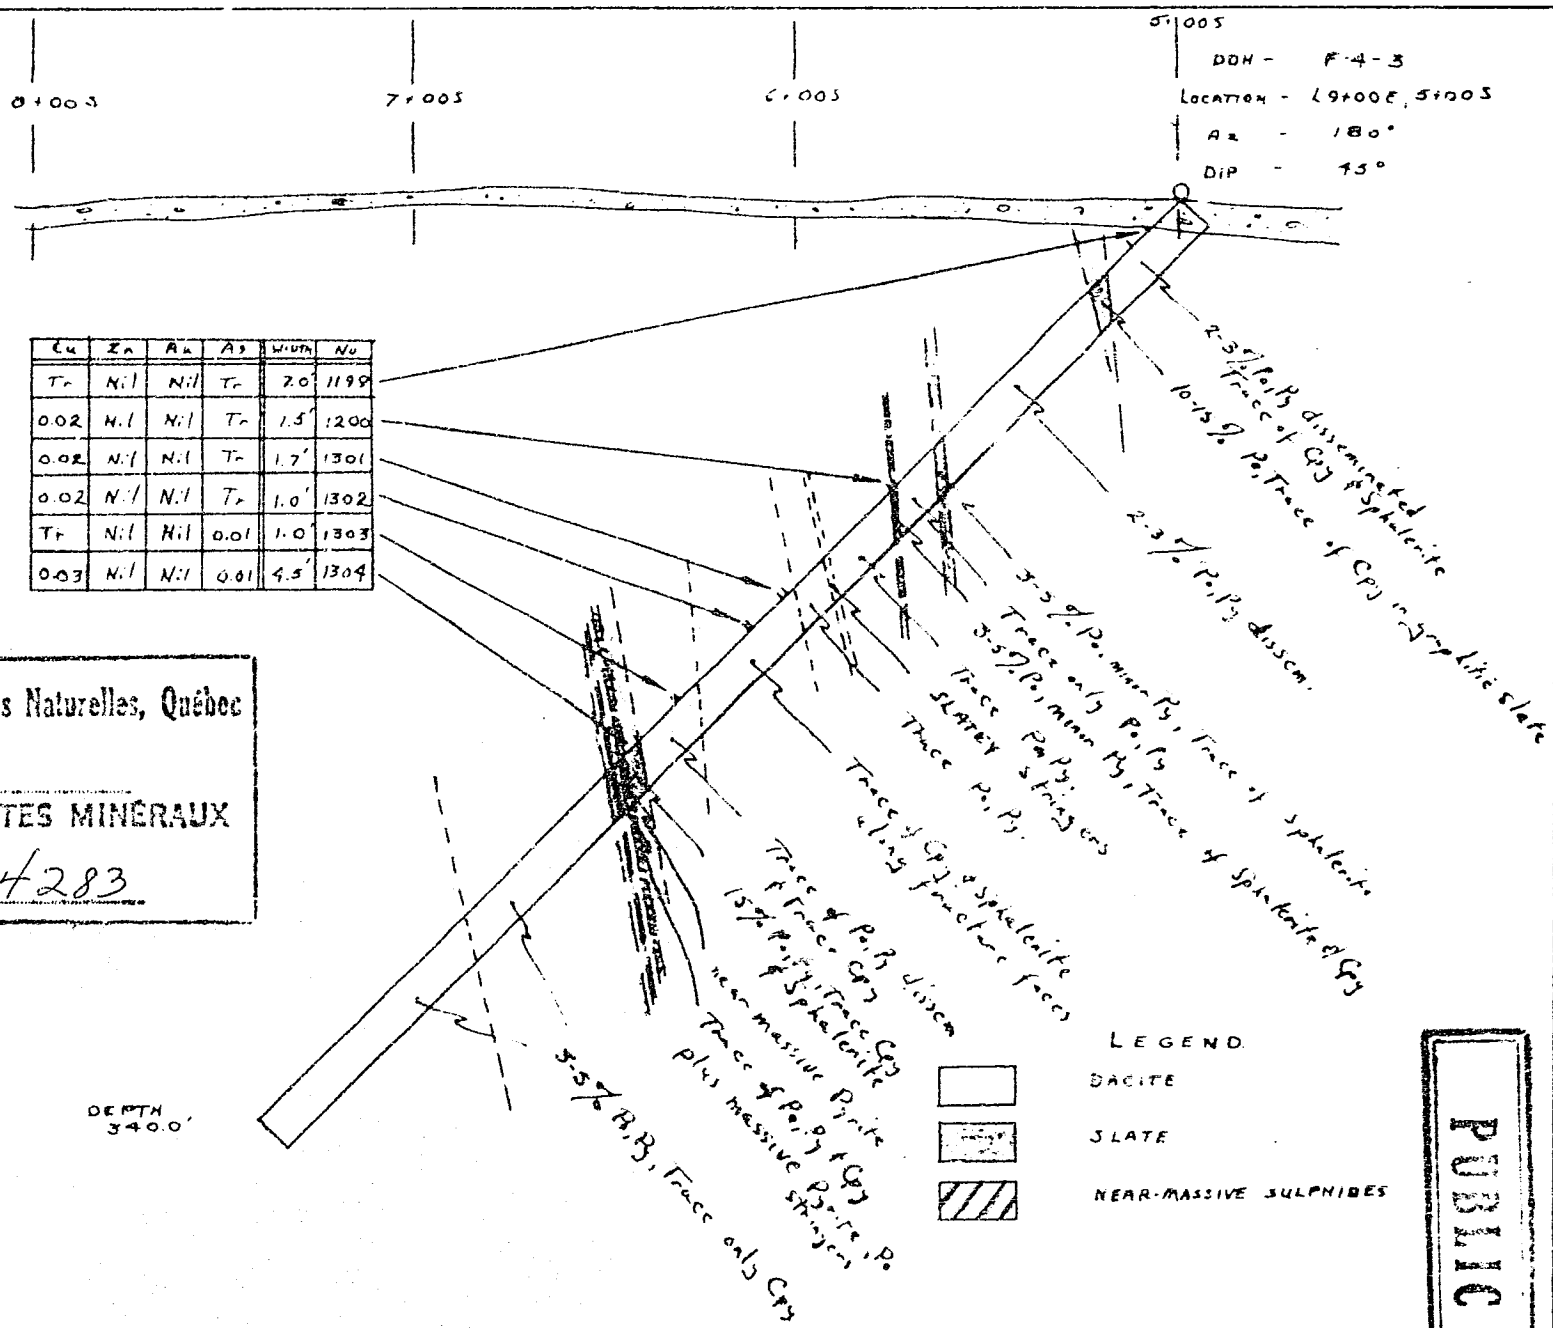 8+00S
7+00S
6+00S
5+00S
DDH - F-4-3
LOCATION - L9+00E, 5+00S
Az - 180°
DIP - 45°
Cu Zn Au Ag WIDTH No
Tr Nil Nil Tr 2.0' 1199
0.02 Nil Nil Tr 1.5' 1200
0.02 Nil Nil Tr 1.7' 1301
0.02 Nil Nil Tr 1.0' 1302
Tr Nil Nil 0.01 1.0' 1303
0.03 Nil Nil 0.01 4.5' 1304
2-3% Po, Py disseminated
Trace of Cpy & Sphalerite
10-15% Po, Trace of Cpy in graphitic slate
2-3% Po, Py dissem.
3-5% Po, minor Py, Trace of sphalerite
Trace only Po, Py
3-5% Po, minor Py, Trace of Sphalerite & Cpy
Trace Po, Py.
SLATEY stringers
Trace Po, Py.
Trace of Cpy & Sphalerite
along fracture faces
Trace of Po, Py dissem
& Trace Cpy
15% Po, Py, Trace Cpy
& Sphalerite
near massive Pyrite
Trace of Po, Py & Cpy
plus massive Pyrite, Po
stringers
3-5% Po, Py, Trace only Cpy
s Naturelles, Québec
TES MINÉRAUX
4283
DEPTH
340.0'
LEGEND
DACITE
SLATE
NEAR-MASSIVE SULPHIDES
PUBLIC